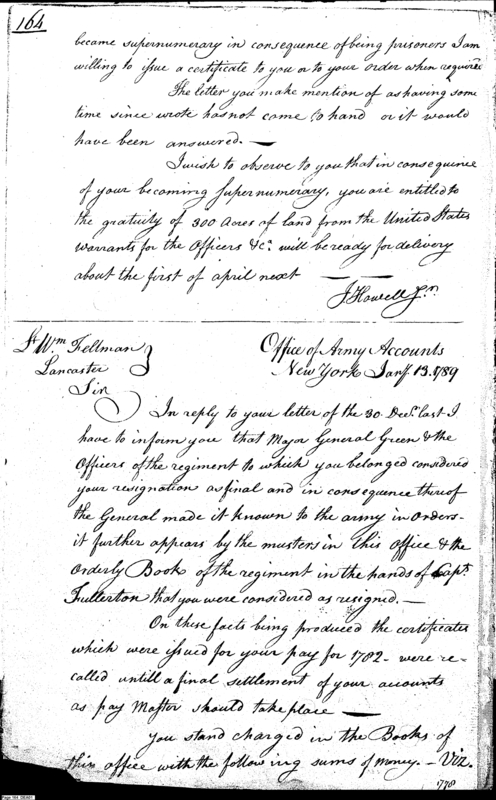 164
became supernumerary in consequence of being prisoners I am
willing to issue a certificate to you or to your order when required
The letter you make mention of as having some
time since wrote has not come to hand or it would
have been answered. —
I wish to observe to you that in consequence
of your becoming supernumerary, you are entitled to
the gratuity of 300 Acres of land from the United States
warrants for the Officers &c.a will be ready for delivery
about the first of april next —
J Howell Jr.
Lt Wm Fellman
Lancaster
Sir
Office of Army Accounts
New York Jany. 13. 1789
In reply to your letter of the 30 Decr. last I
have to inform you that Major General Green & the
Officers of the regiment to which you belonged considered
your resignation as final and in consequence thereof
the General made it known to the army in Orders-
it further appears by the musters in this Office & the
Orderly Book of the regiment in the hands of Capt.
Fullerton that you were considered as resigned. —
On these facts being produced the certificates
which were issued for your pay for 1782 - were re-
called untill a final settlement of your accounts
as pay Master should take place —
you stand charged in the Books of
this office with the following sums of money. - Viz.
1778